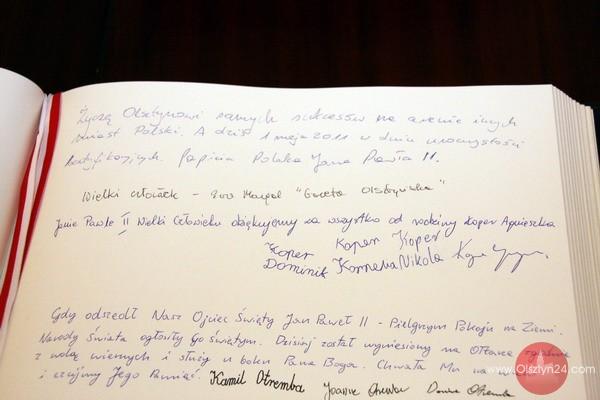 Życzę Olsztynowi samych sukcesów na arenie innych
miast Polski. A dziś 1 maja 2011 w dniu uroczystości
beatyfikacyjnych Papieża Polaka Jana Pawła II.
Wielki człowiek - "Gazeta Olsztyńska"
Janie Pawle II Wielki Człowieku dziękujemy za wszystko od rodziny Koper Agnieszka
Koper Koper Koper
Dominik Kornelia Nikola
Gdy odszedł Nasz Ojciec Święty Jan Paweł II - Pielgrzym Pokoju na Ziemi.
Narody Świata ogłosiły Go Świętym. Dzisiaj został wyniesiony na Ołtarze
z wolą wiernych i służy u boku Pana Boga. Chwała Mu na
i czcijmy Jego Pamięć. Kamil Otremba Joanna Otremba Otremba
www.Olsztyn24.com